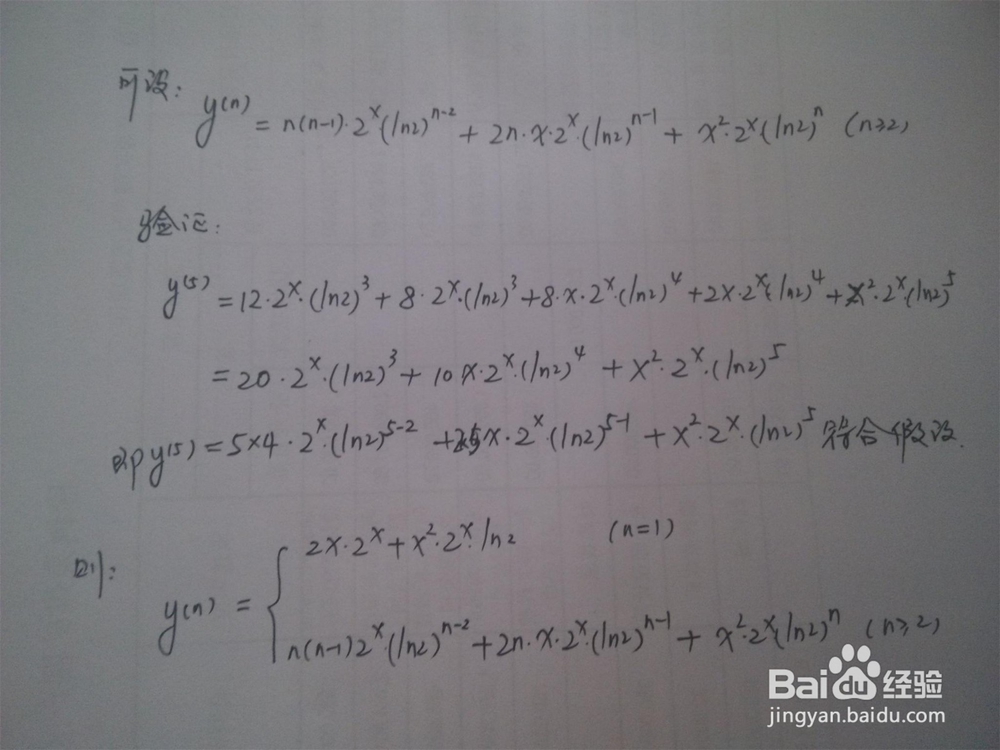 可设：y⁽ⁿ⁾ = n(n-1)·2ˣ(ln2)ⁿ⁻² + 2n·x·2ˣ·(ln2)ⁿ⁻¹ + x²·2ˣ(ln2)ⁿ (n≥2)
验证：
y⁽⁵⁾ = 12·2ˣ·(ln2)³ + 8·2ˣ·(ln2)³ + 8·x·2ˣ·(ln2)⁴ + 2x·2ˣ(ln2)⁴ + x²·2ˣ(ln2)⁵
= 20·2ˣ·(ln2)³ + 10x·2ˣ·(ln2)⁴ + x²·2ˣ·(ln2)⁵
即y⁽⁵⁾ = 5×4·2ˣ·(ln2)⁵⁻² + 2·5x·2ˣ(ln2)⁵⁻¹ + x²·2ˣ·(ln2)⁵ 符合假设.
则：
y⁽ⁿ⁾ = {
2x·2ˣ + x²·2ˣ·ln2 (n=1)
n(n-1)2ˣ·(ln2)ⁿ⁻² + 2n·x·2ˣ(ln2)ⁿ⁻¹ + x²·2ˣ(ln2)ⁿ (n≥2)
Baidu经验
jingyan.baidu.com